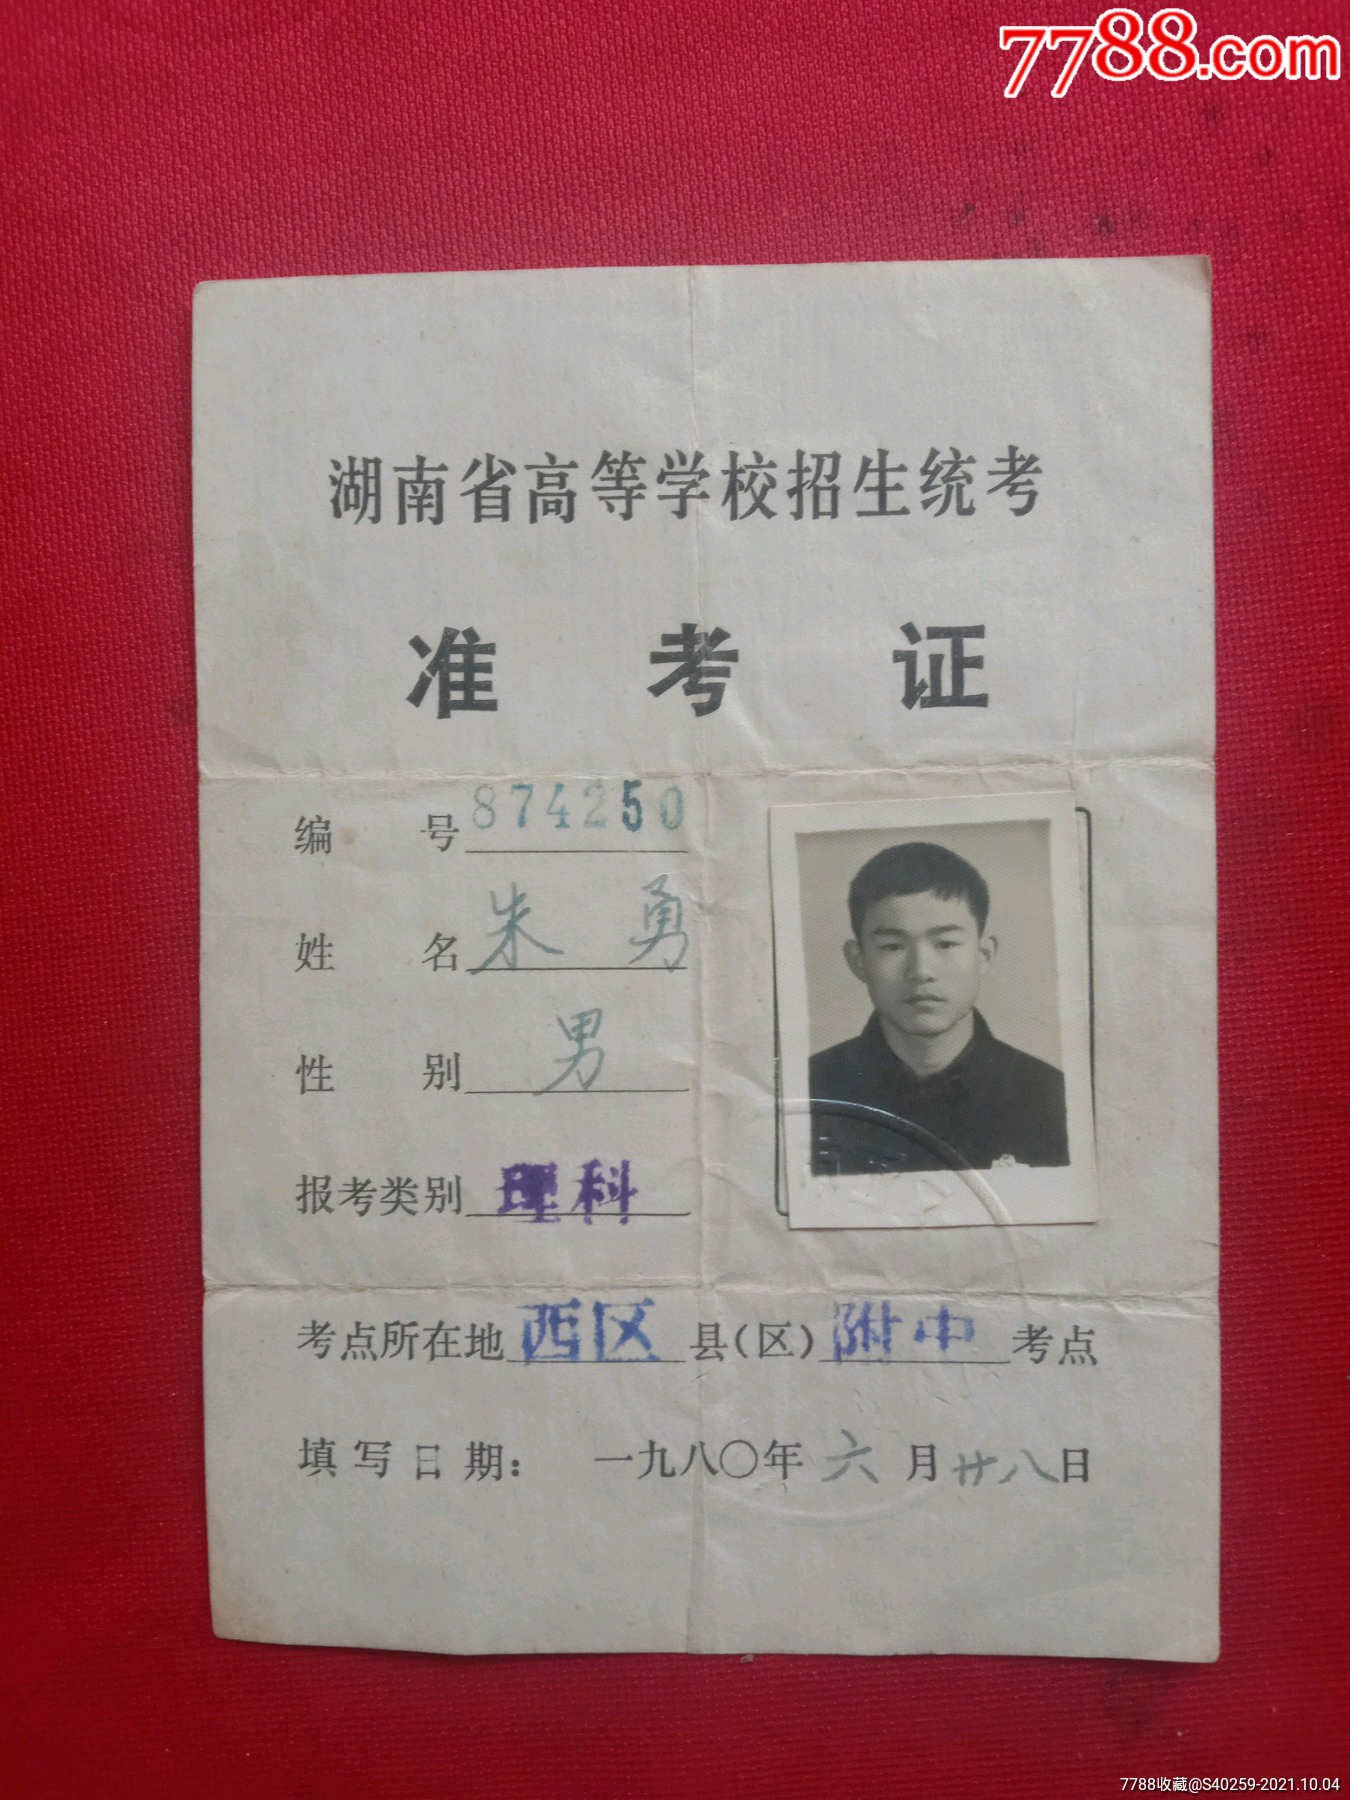 7788.com
湖南省高等学校招生统考
准考证
编号 874250
姓名 朱勇
性别 男
报考类别 理科
考点所在地 西区 县(区) 附中 考点
填写日期: 一九八〇年 六 月 廿八 日
7788收藏@S40259-2021.10.04